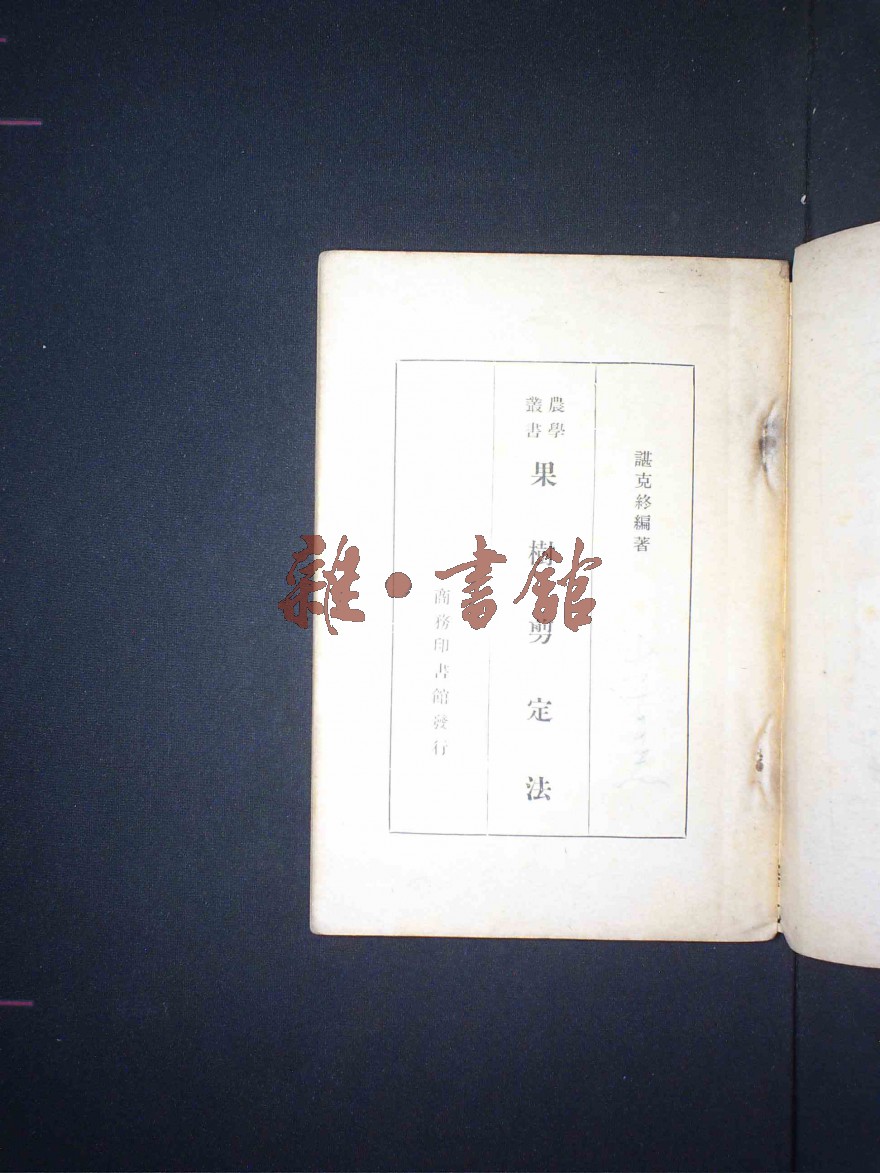 諶克終編著
農學
叢書
果樹剪定法
商務印書館發行
雜·書館